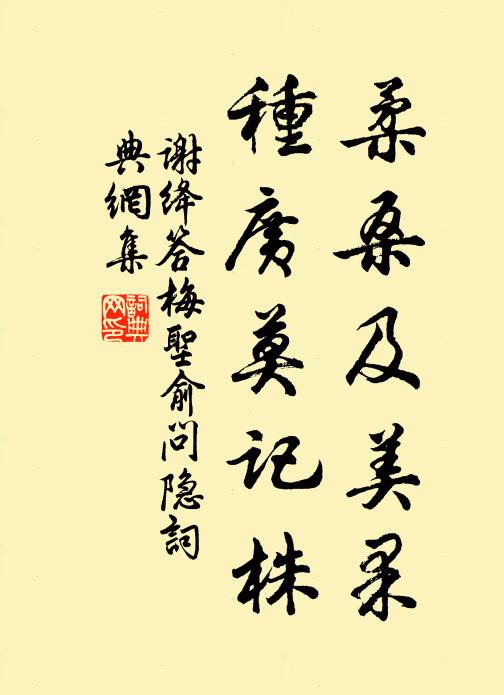 柔桑及美果
種廣莫記株
謝絳答梅聖俞問隐詞
典網集
詞典
网印